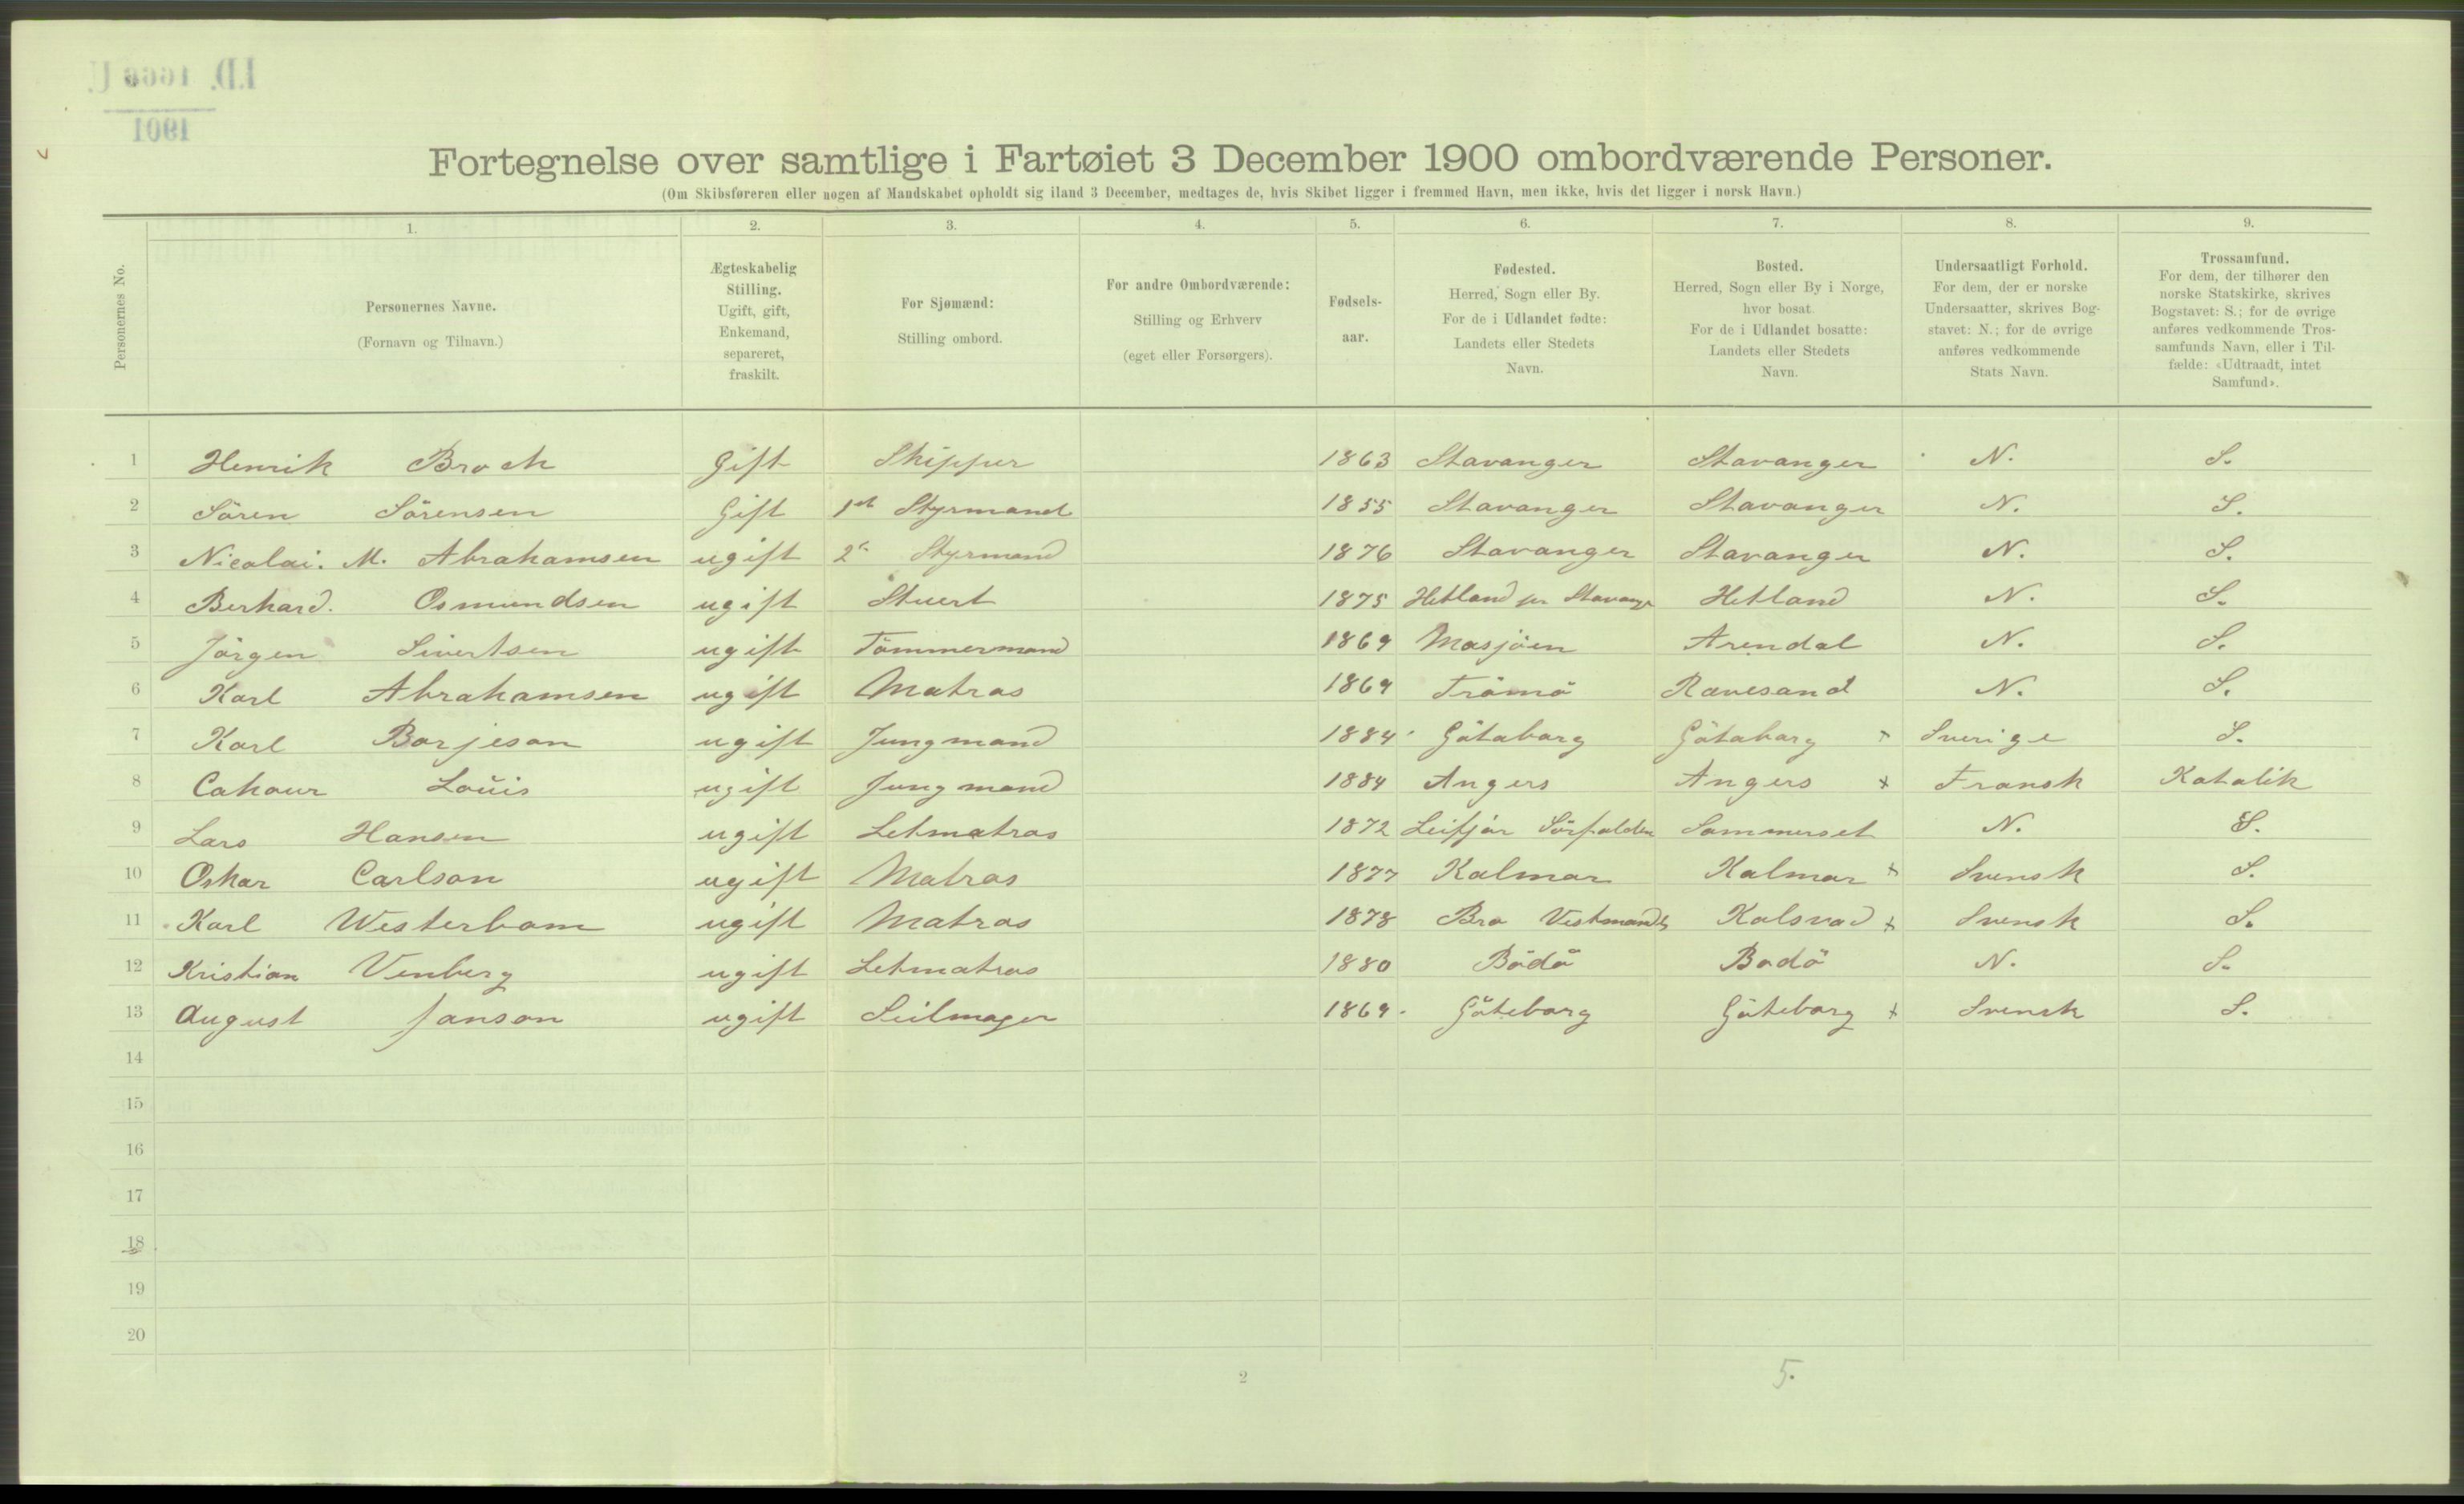 I.D. 1668 U.
1901
Fortegnelse over samtlige i Fartøiet 3 December 1900 ombordværende Personer.
(Om Skibsføreren eller nogen af Mandskabet opholdt sig iland 3 December, medtages de, hvis Skibet ligger i fremmed Havn, men ikke, hvis det ligger i norsk Havn.)
Personernes No.
1. 2. 3. 4. 5. 6. 7. 8. 9.
Personernes Navne.
(Fornavn og Tilnavn.)
Ægteskabelig
Stilling.
Ugift, gift,
Enkemand,
separeret,
fraskilt.
For Sjømænd:
Stilling ombord.
For andre Ombordværende:
Stilling og Erhverv
(eget eller Forsørgers).
Fødsels-
aar.
Fødested.
Herred, Sogn eller By.
For de i Udlandet fødte:
Landets eller Stedets
Navn.
Bosted.
Herred, Sogn eller By i Norge,
hvor bosat.
For de i Udlandet bosatte:
Landets eller Stedets
Navn.
Undersaatligt Forhold.
For dem, der er norske
Undersaatter, skrives Bog-
stavet: N.; for de øvrige
anføres vedkommende
Stats Navn.
Trossamfund.
For dem, der tilhører den
norske Statskirke, skrives
Bogstavet: S.; for de øvrige
anføres vedkommende Tros-
samfunds Navn, eller i Til-
fælde: «Udtraadt, intet
Samfund».
1 Henrik Broch Gift Skipper 1863 Stavanger Stavanger N. S.
2 Sören Sörensen Gift 1st Styrmand 1855 Stavanger Stavanger N. S.
3 Nicolai. M. Abrahamsen ugift 2n Styrmand 1876 Stavanger Stavanger N. S.
4 Berhard. Osmundsen ugift Stuert 1875 Hetland pr Stavanger Hetland N. S.
5 Jörgen Sivertsen ugift Tömmermand 1869 Mosjöen Arendal N. S.
6 Karl Abrahamsen ugift Matros 1869 Trömö Revesand N. S.
7 Karl Borjeson ugift Jungmand 1884 Götaborg Götaborg x Sverige S.
8 Cahour Louis ugift Jungmand 1884 Angers Angers x Fransk Katolik
9 Lars Hansen ugift Letmatros 1872 Leifjör Sörfolden Sommerset N. S.
10 Oskar Carlson ugift Matros 1877 Kalmar Kalmar x Svensk S.
11 Karl Westerbom ugift Matros 1878 Bro Vestmandl Kolsvad x Svensk S.
12 Kristian Venberg ugift Letmatros 1880 Bödö Bodö N. S.
13 August Janson ugift Seilmager 1869 Göteborg Göteborg x Svensk S.
14
15
16
17
18
19
20
2
5.